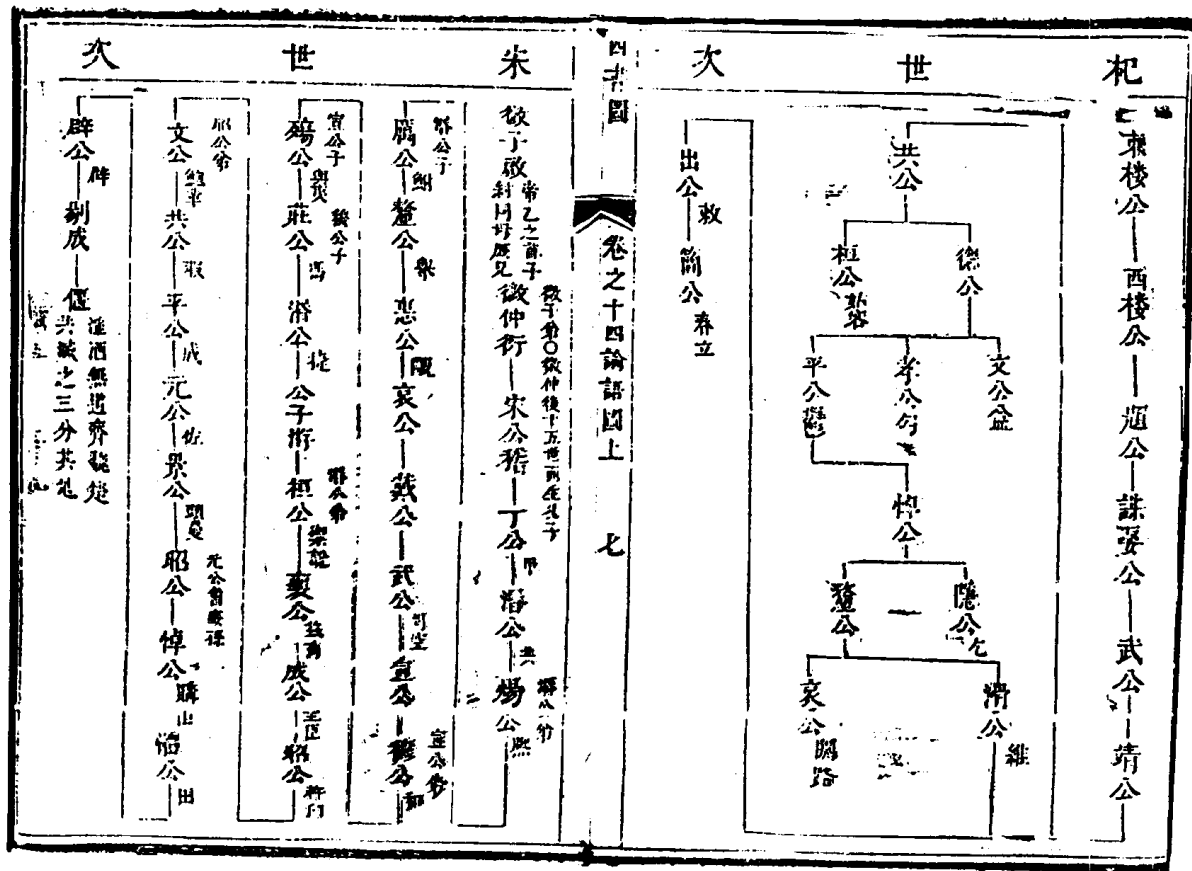 杞世次
東楼公 西楼公 題公 謀娶公 武公 靖公
共公
德公 桓公姑容
文公益 孝公匄 平公鬱
悼公
隱公乞 釐公
湣公維 哀公閼路
出公敕 簡公春立
四書圖 卷之十四論語圖上 七
宋世次
微子啟 帝乙之首子 紂同母庶兄 微仲衍 微子弟○微仲後十五世而生孔子 宋公稽 丁公申 湣公共 煬公熙 湣公弟
厲公鮒 湣公子 釐公舉 惠公覸 哀公 戴公 武公司空 宣公 穆公和 宣公弟
殤公與夷 宣公子 莊公馮 穆公子 湣公捷 公子游 桓公禦說 湣公弟 襄公茲甫 成公王臣 昭公杵臼
文公鮑革 昭公弟 共公瑕 平公成 元公佐 景公頭曼 昭公 元公曾庶孫 悼公購由 休公田
辟公辟 剔成 偃 淫酒無道齊魏楚共滅之三分其地